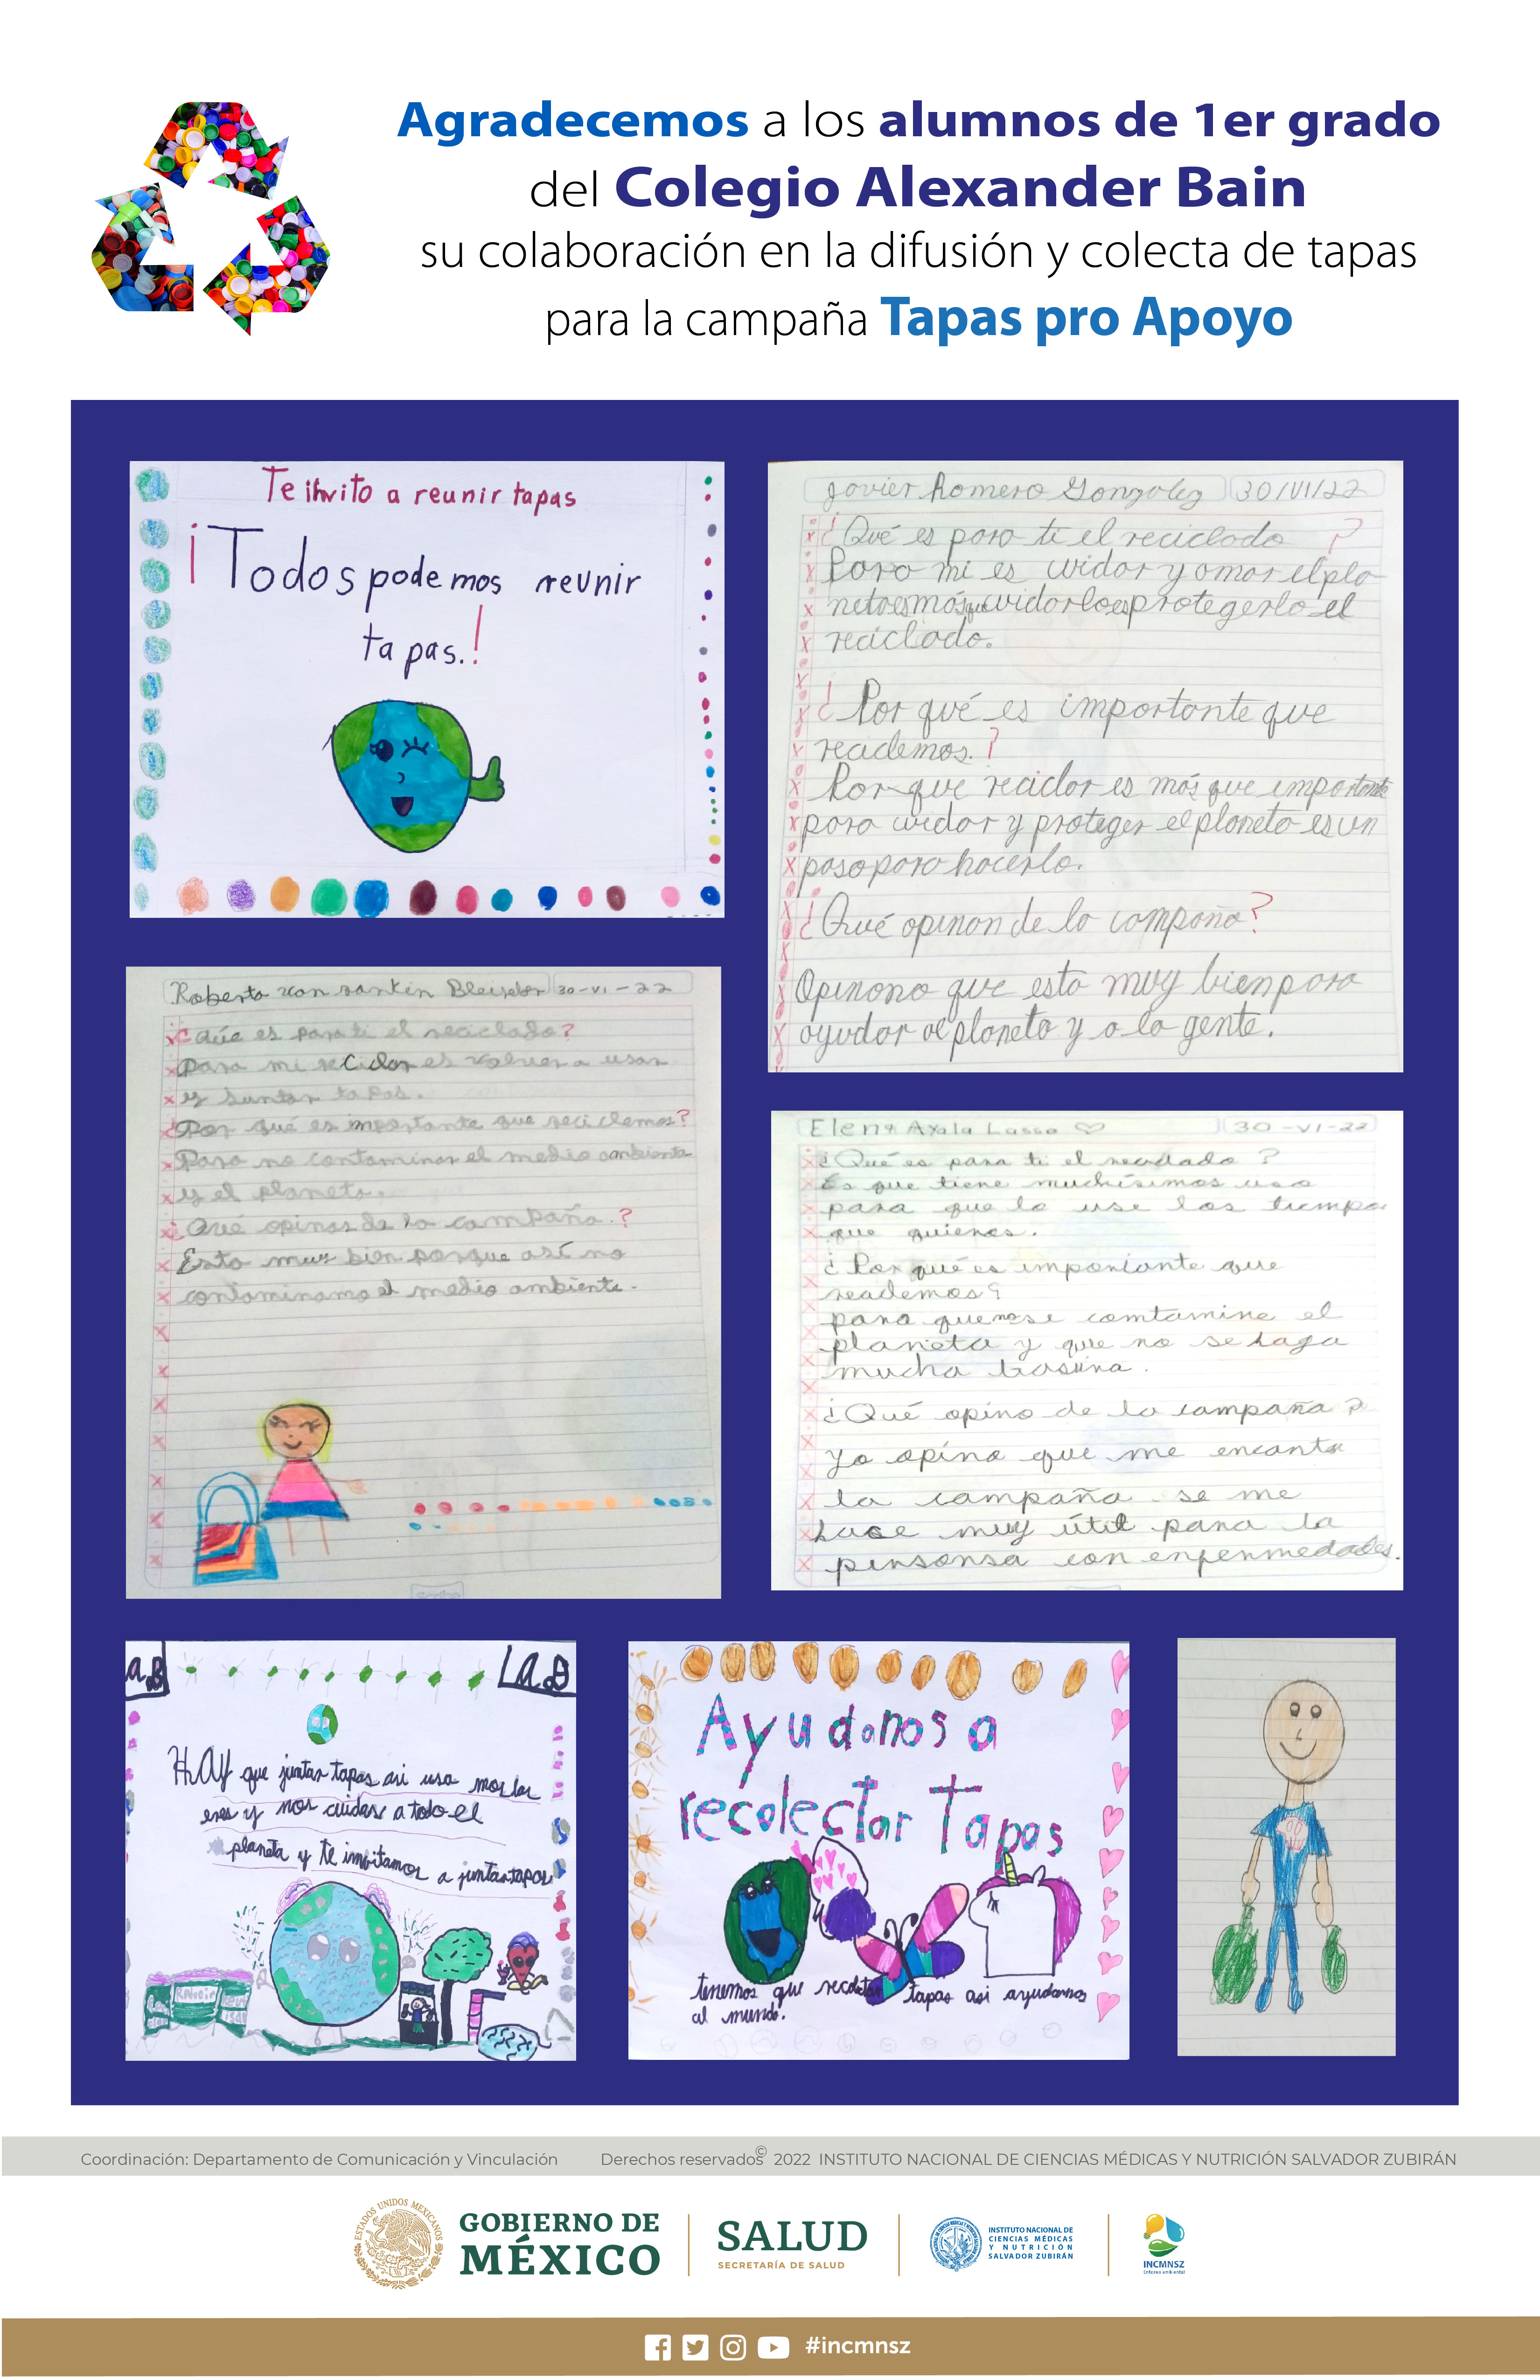 Agradecemos a los alumnos de 1er grado
del Colegio Alexander Bain
su colaboración en la difusión y colecta de tapas
para la campaña Tapas pro Apoyo
Te invito a reunir tapas
¡Todos podemos reunir
tapas.!
Javier Romero Gonzalez 30/VI/22
¿Qué es para ti el reciclado ?
Para mi es cuidar y amar el pla
neta es más que cuidarlo es protegerlo el
reciclado.
¿Por qué es importante que
reciclemos.?
Por que reciclar es más que importante
para cuidar y proteger el planeta es un
paso para hacerlo.
¿Qué opinan de la campaña?
Opinono que esta muy bien para
ayudar al planeta y a la gente.
Roberta von 30-VI-22
¿Qúe es para ti el reciclado?
Para mi reciclar es volver a usar
y juntar tapas.
¿Por qué es importante que reciclemos?
Para no contaminar el medio ambiente
y el planeta.
¿Qué opinas de la campaña.?
Esta muy bien porque así no
contaminamo el medio ambiente.
scribe
Elena Ayala Lasso 30-VI-22
¿Qué es para ti el recidado ?
Es que tiene muchísimos uso
para que lo use los tiempo
que quieras.
¿Por qué es importante que
recidemos?
para que no se comtamine el
planeta y que no se haga
mucha basura.
¿Qué opino de la campaña ?
Yo opino que me encanta
la campaña se me
hace muy útil para la
pensonsa con enfenmedades.
a.B
La.B
HAy que juntar tapas asi usa mos las
eres y nos cuidar a todo el
planeta y te invitamos a juntar tapas
Ayudanos a
recolectar Tapas
tenemos que recolectar tapas asi ayudamos
al mundo.
Coordinación: Departamento de Comunicación y Vinculación Derechos reservados © 2022 INSTITUTO NACIONAL DE CIENCIAS MÉDICAS Y NUTRICIÓN SALVADOR ZUBIRÁN
ESTADOS UNIDOS MEXICANOS
GOBIERNO DE
MÉXICO
SALUD
SECRETARÍA DE SALUD
INSTITUTO NACIONAL DE
CIENCIAS MÉDICAS
Y NUTRICIÓN
SALVADOR ZUBIRÁN
INCMNSZ
Entorno ambiental
#incmnsz